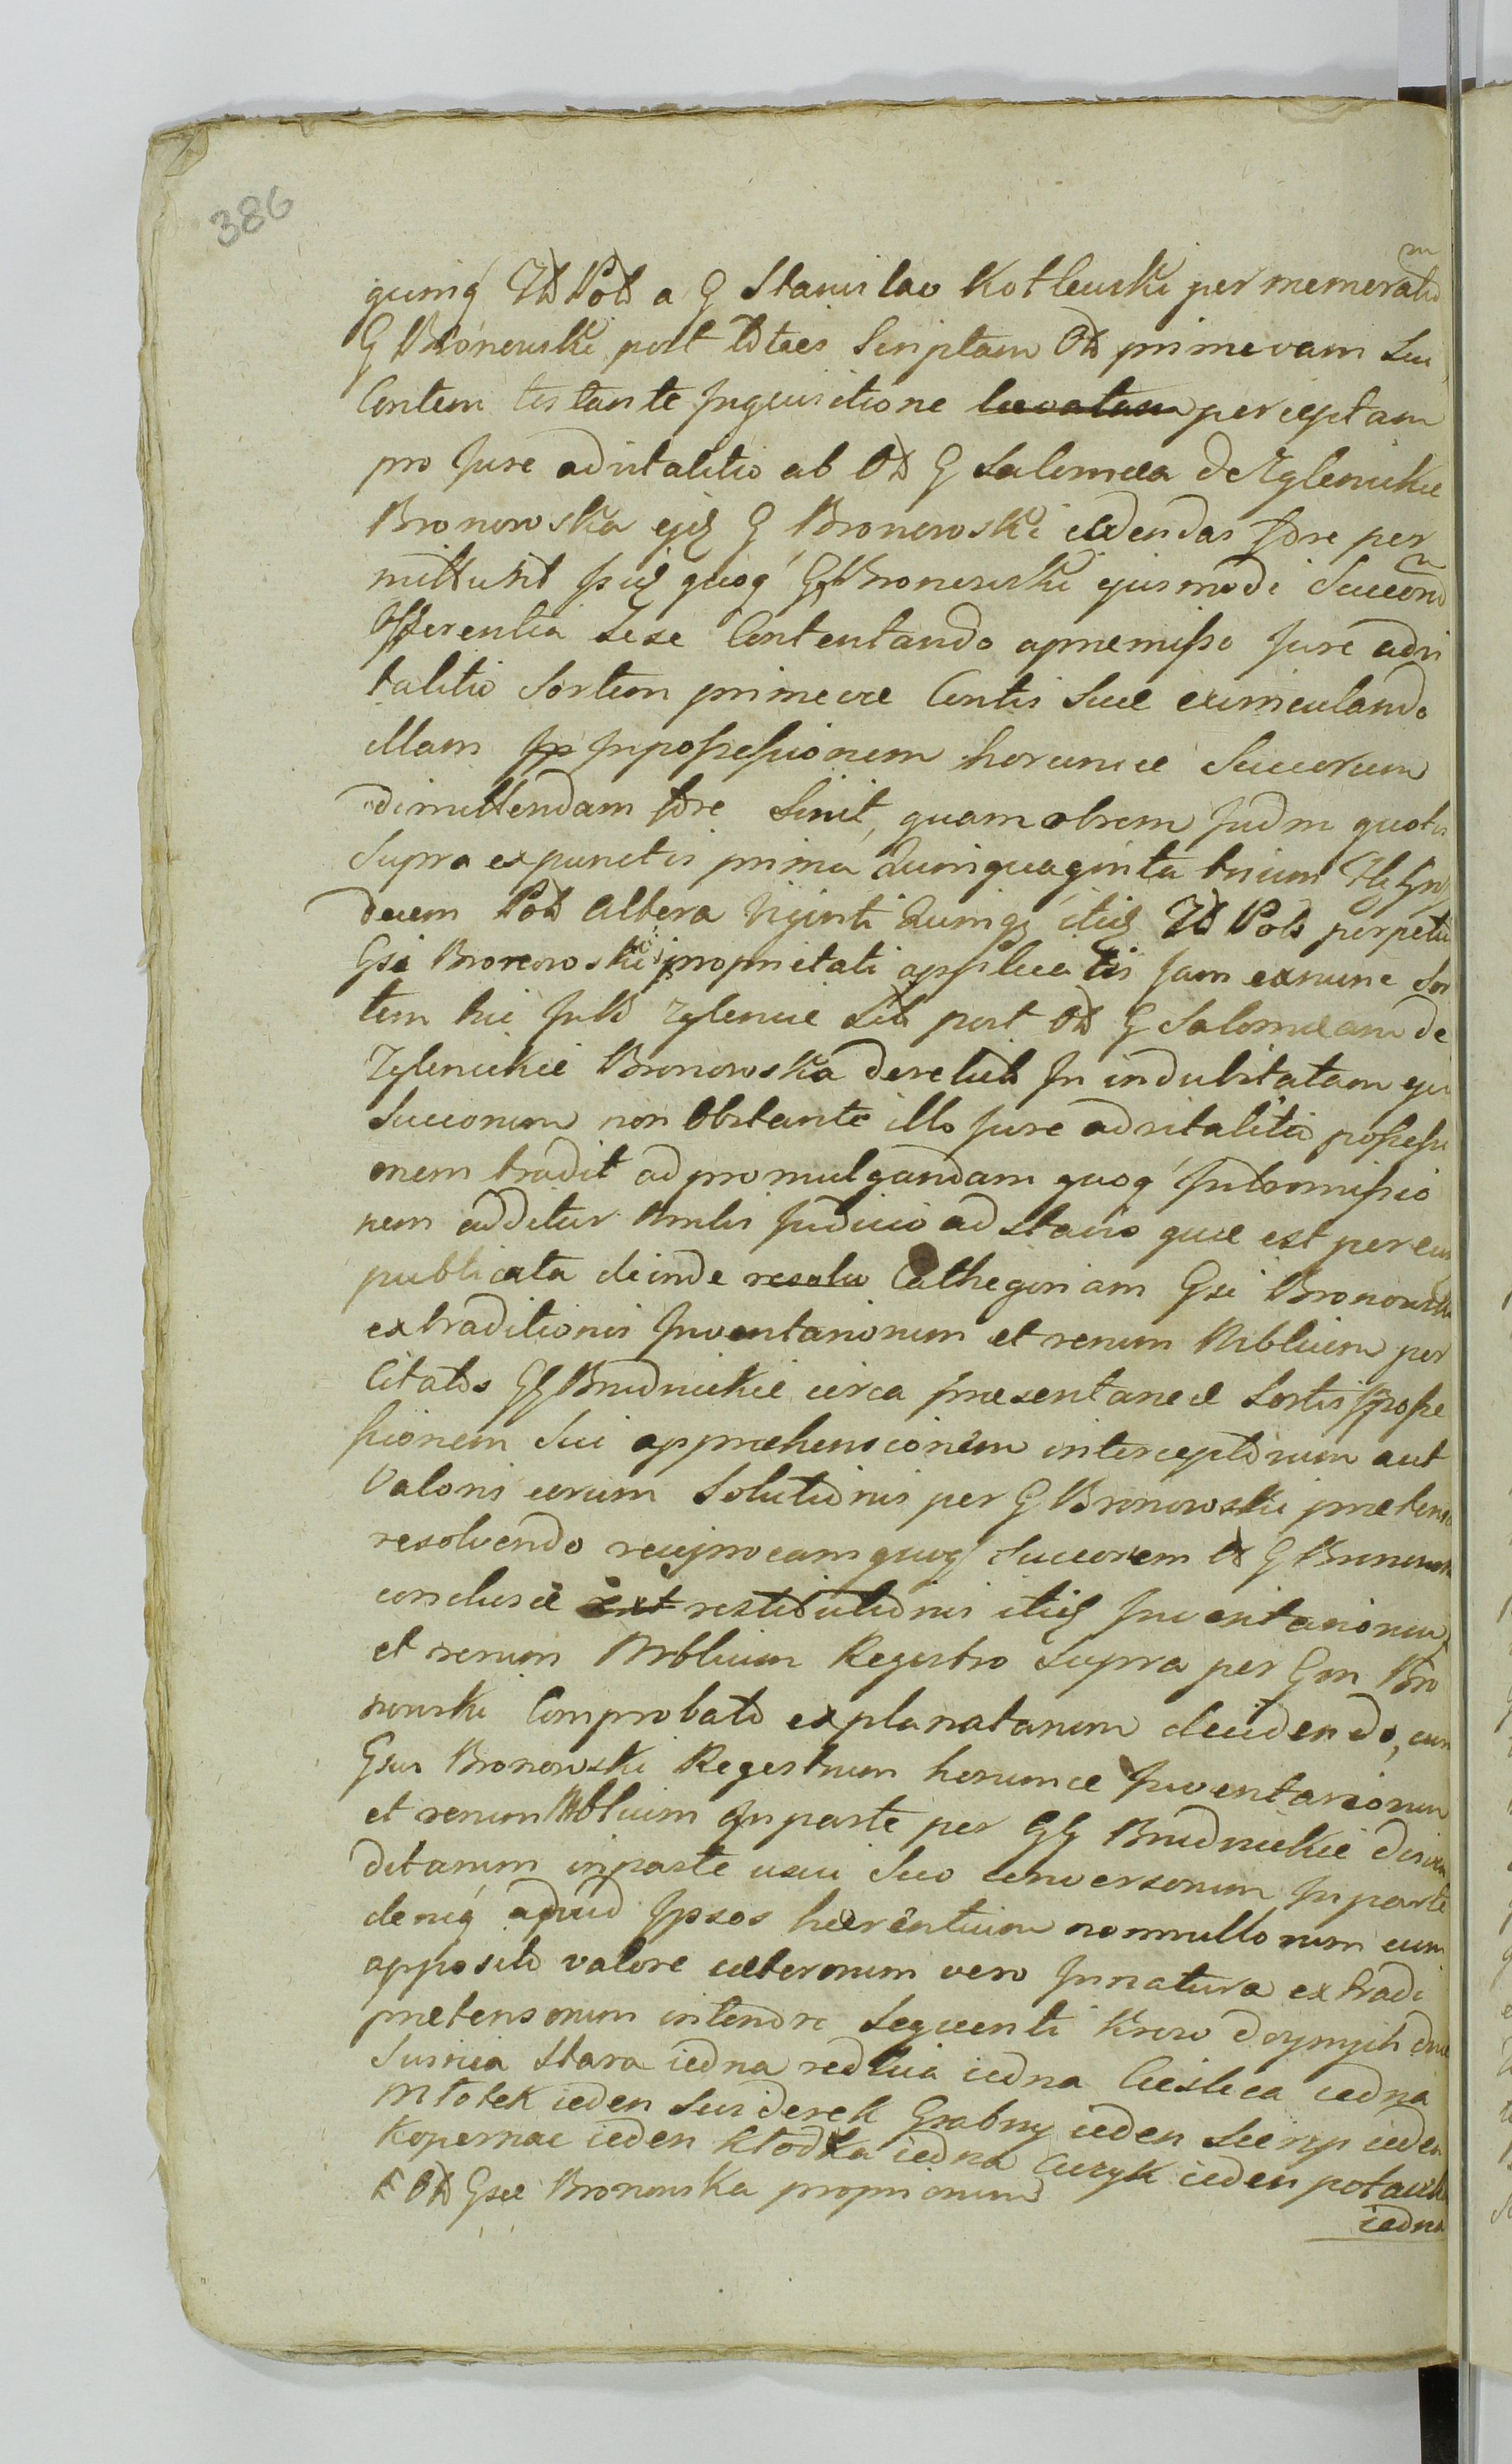 386
quinq́ Pol a G Stanislao Kotlewski per memorat
G Bronowski post scriptam primevam Su
Contem testante Inquisitione levatam perceptam
pro Jure advitalitio ab G Salomea de Zglenickie
Bronowska G Bronowski cedendas fore per
mittunt quoq́ G Bronowski ejusmodi Succor
Offerentia Sese Contentando apremisso Jure advi
talitio Sortem primevæ Contis Suæ eximeulando
illam Inpossessionem horumce Succorum
dimittendam fore Sinit, quamobrem Judm quotis
Supra expunctis prima Quinquaginta trium
decem Pol altera Viginti Quinq itid Pols perpetu
Gsi Bronowski proprietati applicatis Jam exnunc Sor
tem hic Zglenice post G Salomeam de
Zglenickie Bronowska derelict In indubitatam eju
Succorum non Obstante illo Jure advitalitio possessi
onem tradit ad promulgandam quoq́ Intromissio
nem additur Judicio ad stario quæ est per eum
publicata deinde resolu Cathegoriam Gsi Bronowski
extraditionis Inventariorum et rerum Mblium per
Citatos GG Brudnickie circa præsentaneæ Sortis Inposse
ssionem Sui appræhensionem interceptorum aut
Valoris eorum Solutionis per G Bronowski prætens
resolvendo reciprocam quoq Succorem G Bronowsk
conclusæ ext restitutionis itid Inventariorum
et rerum Mblium Regestro Supra per Gm Bro
nowski Comprobato explanatarum decidendo, cum
Gsus Bronowski Regestrum horumce Inventariorum
et rerum Mblium Inparte per GG Brudnickie
ditarum inparte usui Suo conversorum Inparte
deniq́ apud Ipsos hærentium nonnullorum cum
apposito valore cæterorum vero Innatura extradi
prætensorum intendre Sequenti Krow doynych dwie
Swinia Stara iedna redlica iedna Cieslica iedna
Młotek ieden Swiderek Grabny ieden Sierzp ieden
Kopernac ieden Kłodka iedna Curyk ieden potawka
Gsæ Bronowska propriorum
iedna